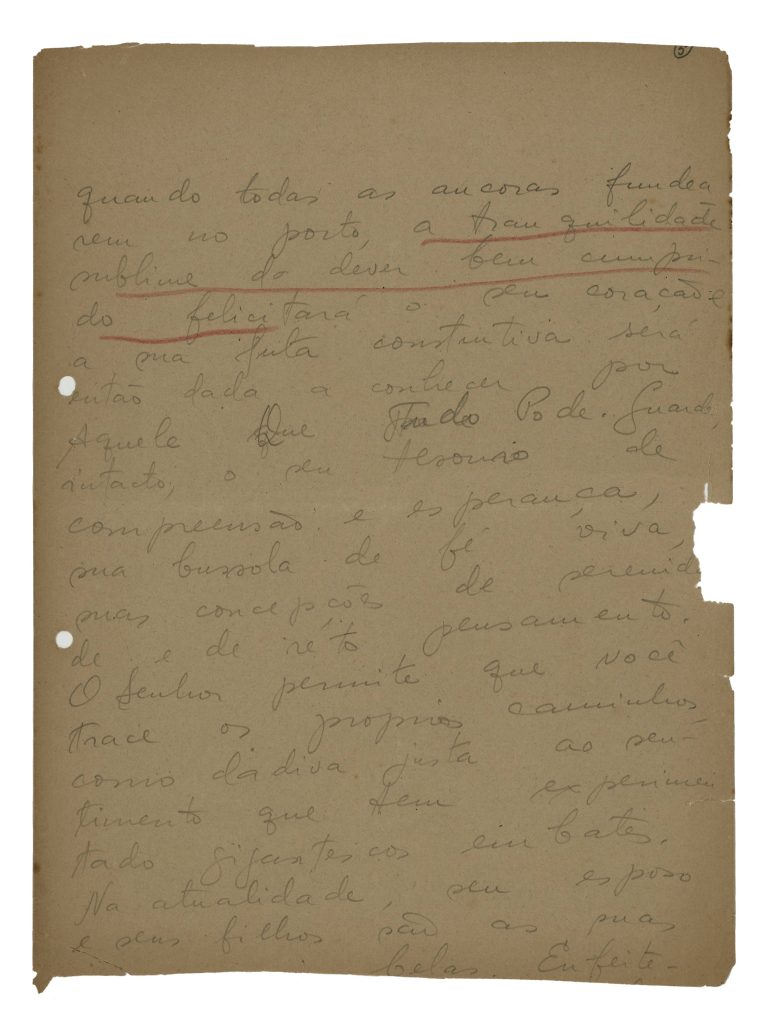 5
quando todas as ancoras fundea
rem no porto, a tranquilidade
sublime do dever bem cumpri-
do felicitará o seu coração e
a sua luta construtiva será
então dada a conhecer por
Aquele Que Tudo Pode. Guarde,
intacto, o seu tesouro de
compreensão e esperança,
sua bussola de fé viva,
suas concepções de serenida
de e de réto pensamento.
O Senhor permite que você
trace os proprios caminhos
como dádiva justa ao sen-
timento que tem experimen
tado gigantescos embates.
Na atualidade, seu esposo
e seus filhos são as suas
belas. Enfeite-